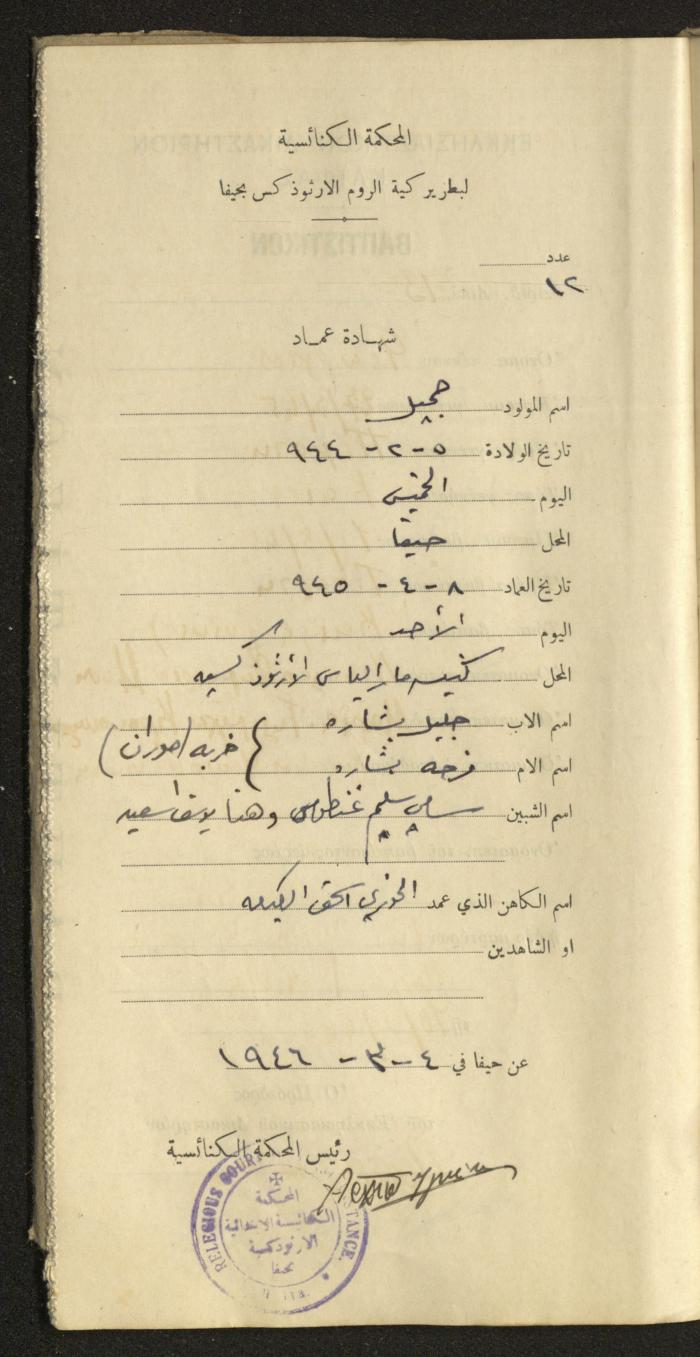 المحكمة الكنائسية
لبطريركية الروم الارثوذكس بحيفا
عدد
١٢
شهادة عماد
اسم المولود جميل
تاريخ الولادة ٥ - ٢ - ٩٤٤
اليوم الخميس
المحل حيفا
تاريخ العماد ٨ - ٤ - ٩٤٥
اليوم الأحد
المحل كنيسة مار الياس الأرثوذكسيه
اسم الاب جليل بشاره } خربه (حوران)
اسم الام فرحه بشاره
اسم الشبين سليم غنطوس وهنا يوسف اسعيد
اسم الكاهن الذي عمد الخوري اسحق
او الشاهدين
عن حيفا في ٤ - ٣ - ١٩٤٦
رئيس المحكمة الكنائسية
RELEGIOUS COURT TANCE.
المحكمة
الكنائسية الابتدائية
الارثوذكسية
بحيفا